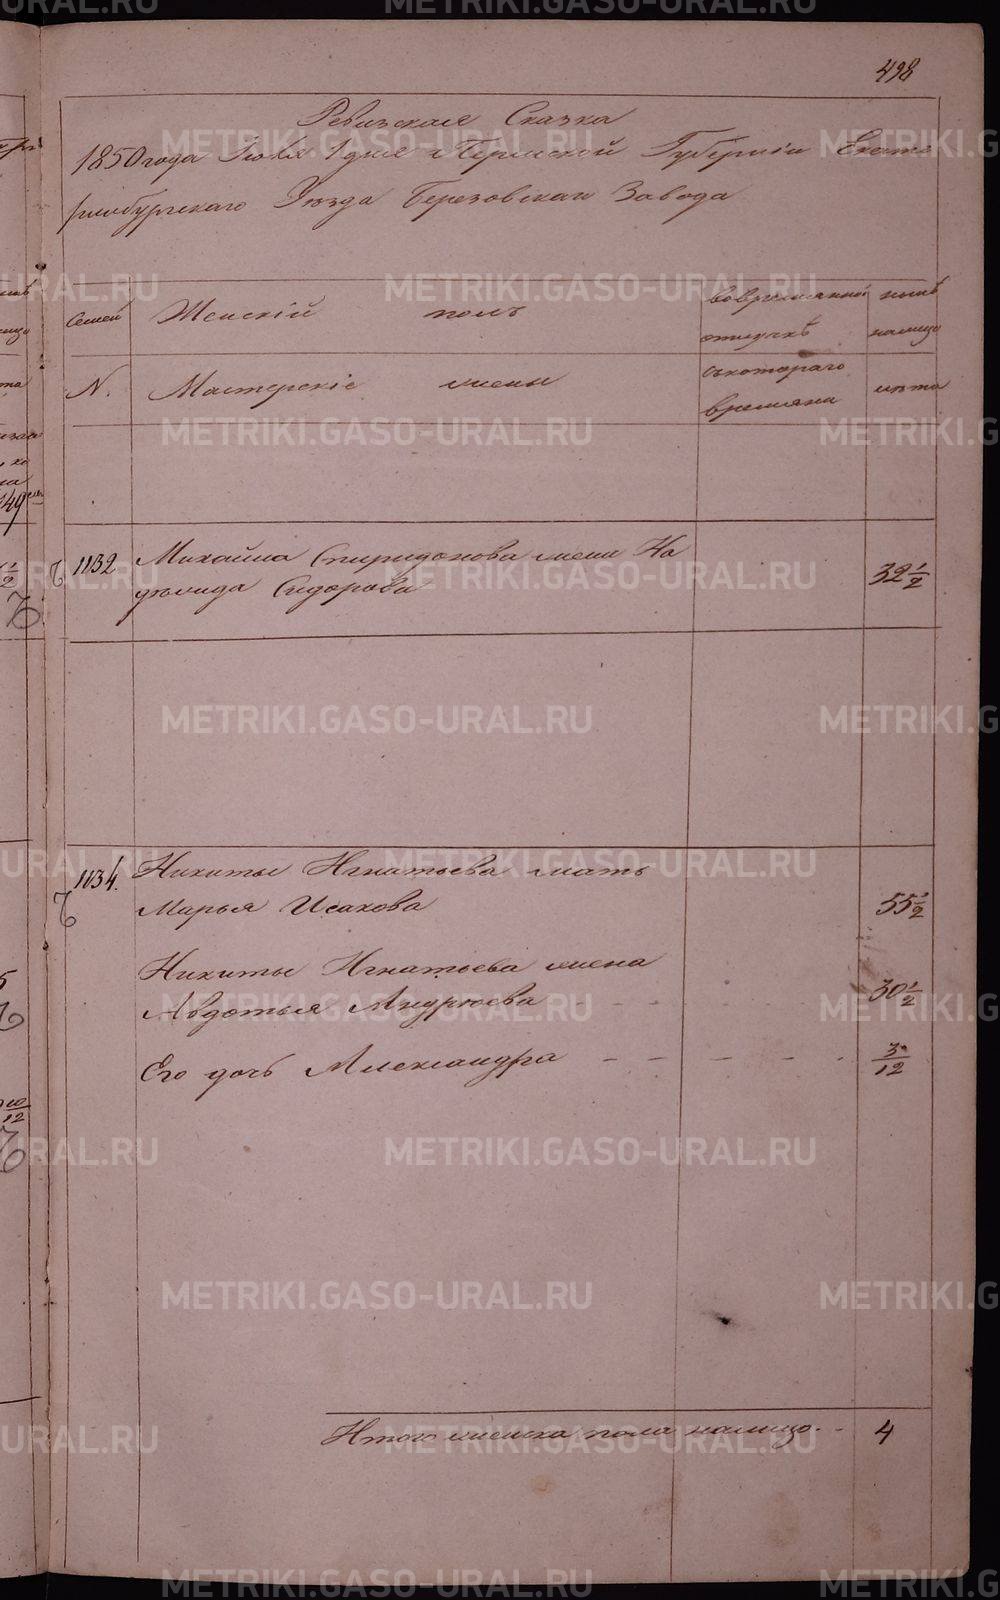 498
Ревизская Сказка
1850 года Іюля 1 дня Пермской Губерніи Екате
ринбургскаго Уезда Березовскаго Завода
Семей Женскій полъ
вовременной
отлучкѣ
нынѣ
налицо
N. Мастерскіе жены
скотораго
времяни
лѣта
1132 Михайла Спиридонова жена На
фолида Сидорова 32 1/2
1134. Никиты Игнатьева мать
Марья Исакова 55 1/2
Никиты Игнатьева жена
Авдотья Андреева 30 1/2
Его дочь Александра 3/12
Итого женска пола налицо 4
METRIKI.GASO-URAL.RU